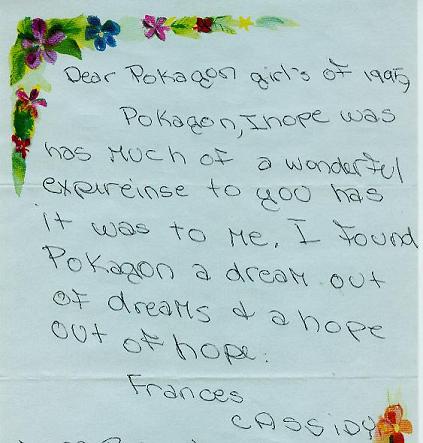 Dear Pokagon girl's of 1995,
Pokagon, I hope was
has much of a wonderful
expireinse to you has
it was to me. I found
Pokagon a dream out
of dreams & a hope
out of hope.
Frances
Cassidy